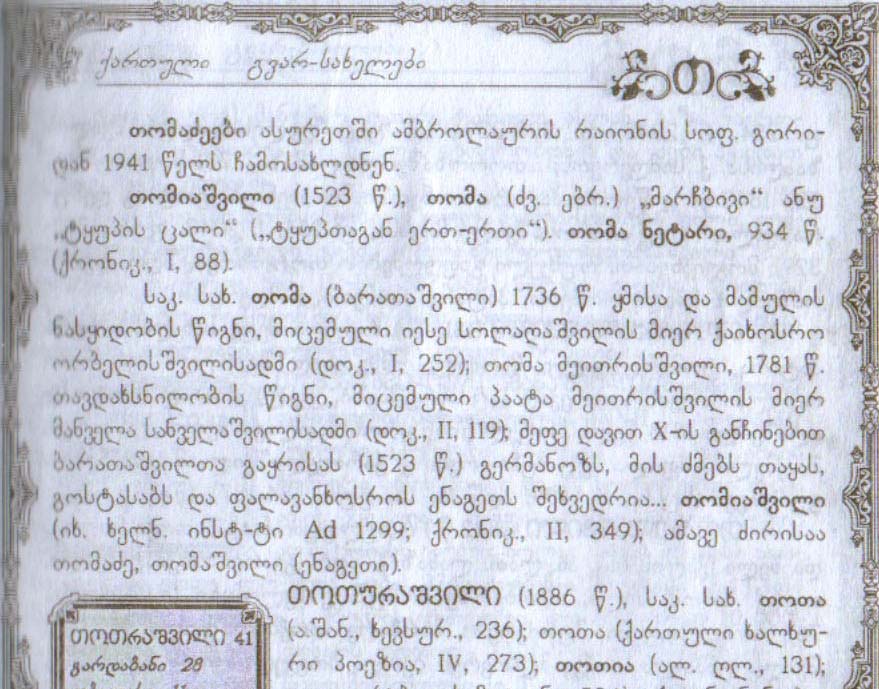 ქართული გვარ-სახელები
თ
თომაძეები ასურეთში ამბროლაურის რაიონის სოფ. გორი-
დან 1941 წელს ჩამოსახლდნენ.
თომიაშვილი (1523 წ.), თომა (ძვ. ებრ.) „მარჩბივი“ ანუ
„ტყუპის ცალი“ („ტყუპთაგან ერთ-ერთი“). თომა ნეტარი, 934 წ.
(ქრონიკ., I, 88).
საკ. სახ. თომა (ბარათაშვილი) 1736 წ. ყმისა და მამულის
ნასყიდობის წიგნი, მიცემული იესე სოლაღაშვილის მიერ ქაიხოსრო
ორბელისშვილისადმი (დოკ., I, 252); თომა მეითრისშვილი, 1781 წ.
თავდახსნილობის წიგნი, მიცემული პაატა მეითრისშვილის მიერ
მანველა სანველაშვილისადმი (დოკ., II, 119); მეფე დავით X-ის განჩინებით
ბარათაშვილთა გაყრისას (1523 წ.) გერმანოზს, მის ძმებს თაყას,
გოსტასაბს და ფალავანხოსროს ენაგეთს შეხვედრია... თომიაშვილი
(იხ. ხელნ. ინსტ-ტი Ad 1299; ქრონიკ., II, 349); ამავე ძირისაა
თომაძე, თომაშვილი (ენაგეთი).
თოთურაშვილი (1886 წ.), საკ. სახ. თოთა
(ა.შან., ხევსურ., 236); თოთა (ქართული ხალხუ-
რი პოეზია, IV, 273); თოთია (ალ. ღლ., 131);
თოთრაშვილი 41
გარდაბანი 28